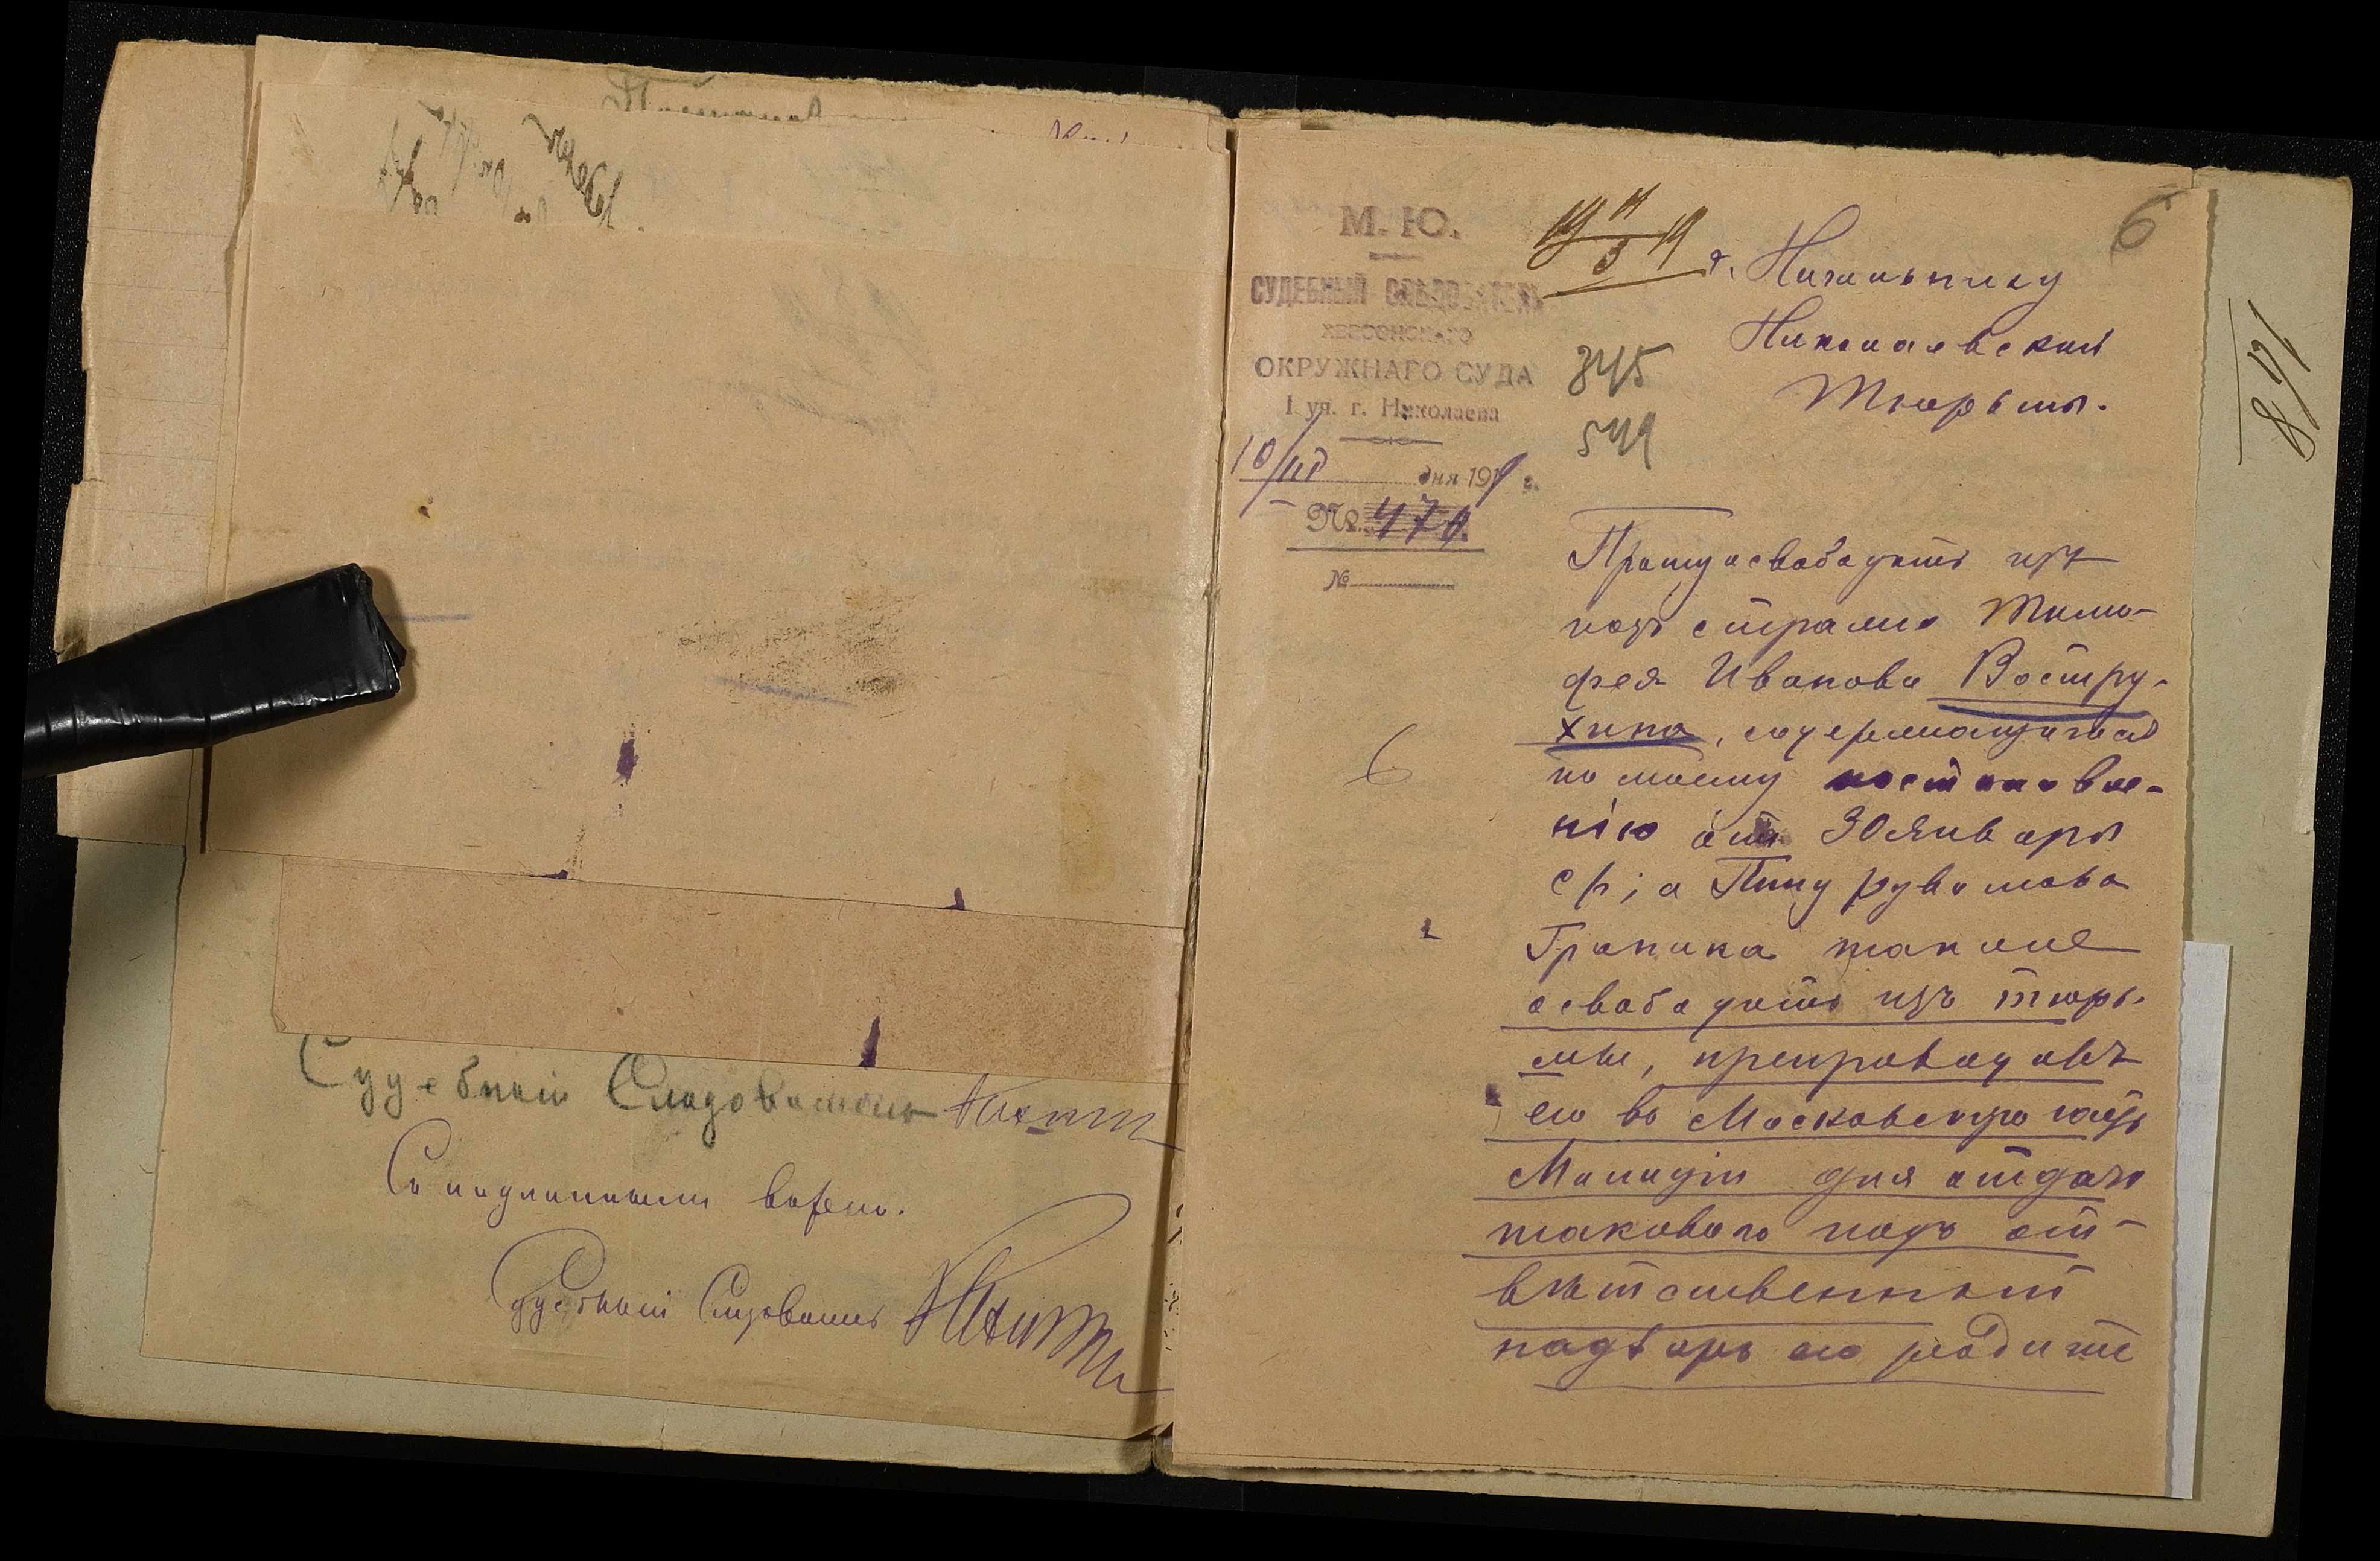 Судебный Следователь
Съ подлиннымъ вѣрно.
Судебный Следователь
6
М. Ю.
СУДЕБНЫЙ СЛѢДОВАТЕЛЬ
ХЕРСОНСКАГО
ОКРУЖНАГО СУДА
I уч. г. Николаева
10/III дня 1919 г.
№ 470
№
19 11/3 19
845
549
г. Начальнику
Николаевской
Тюрьмы.
Прошу освободить изъ
подъ стражи Тимо-
фея Иванова Востру-
хина, содержащагося
по моему постановле-
нію отъ 30 Января
с/г; а Пинхуса
Граника также
освободить изъ тюрь-
мы, препроводивъ
его въ Московскую часть
Милиціи для отдачи
такового подъ от-
вѣтственный
надзоръ его родите
6
871